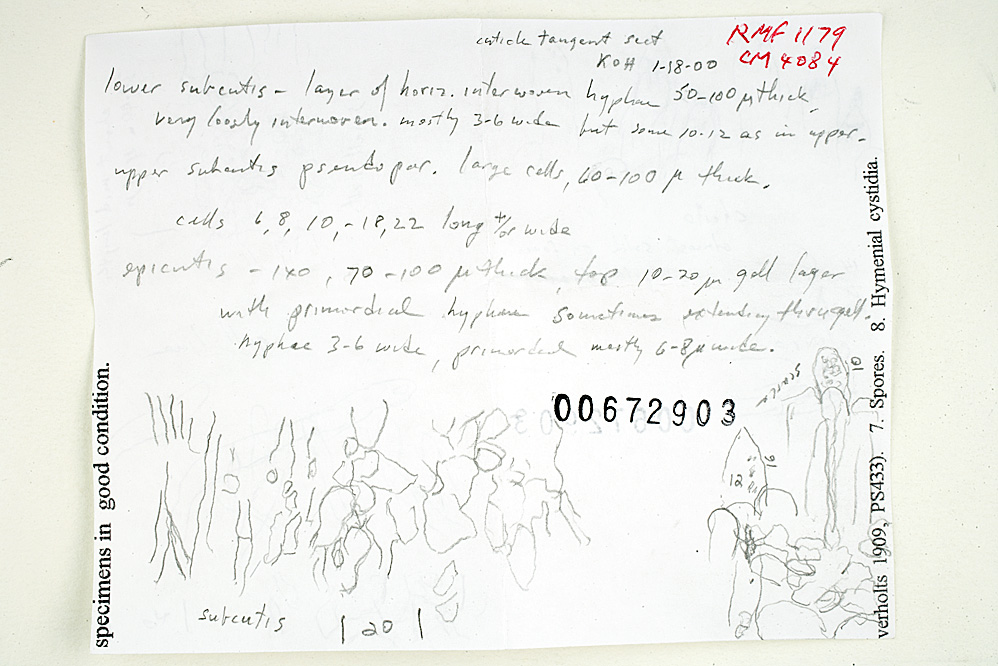 cuticle tangent sect
RMF 1179
KOH 1-18-00
CM 4084
lower subcutis - layer of horiz. interwoven hyphae 50-100 µ thick,
very loosly interwoven. mostly 3-6 wide but some 10-12 as in upper.
upper subcutis pseudopar. large cells, 60-100 µ thick.
cells 6, 8, 10, -18, 22 long +/or wide
epicutis - 140, 70-100 µ thick, top 10-20 µ gell layer
with primordial hyphae sometimes extending thru gell.
hyphae 3-6 wide, primordial mostly 6-8 µ wide.
00672903
12
subcutis | 20 |
specimens in good condition.
verholts 1909, PS433). 7. Spores. 8. Hymenial cystidia.